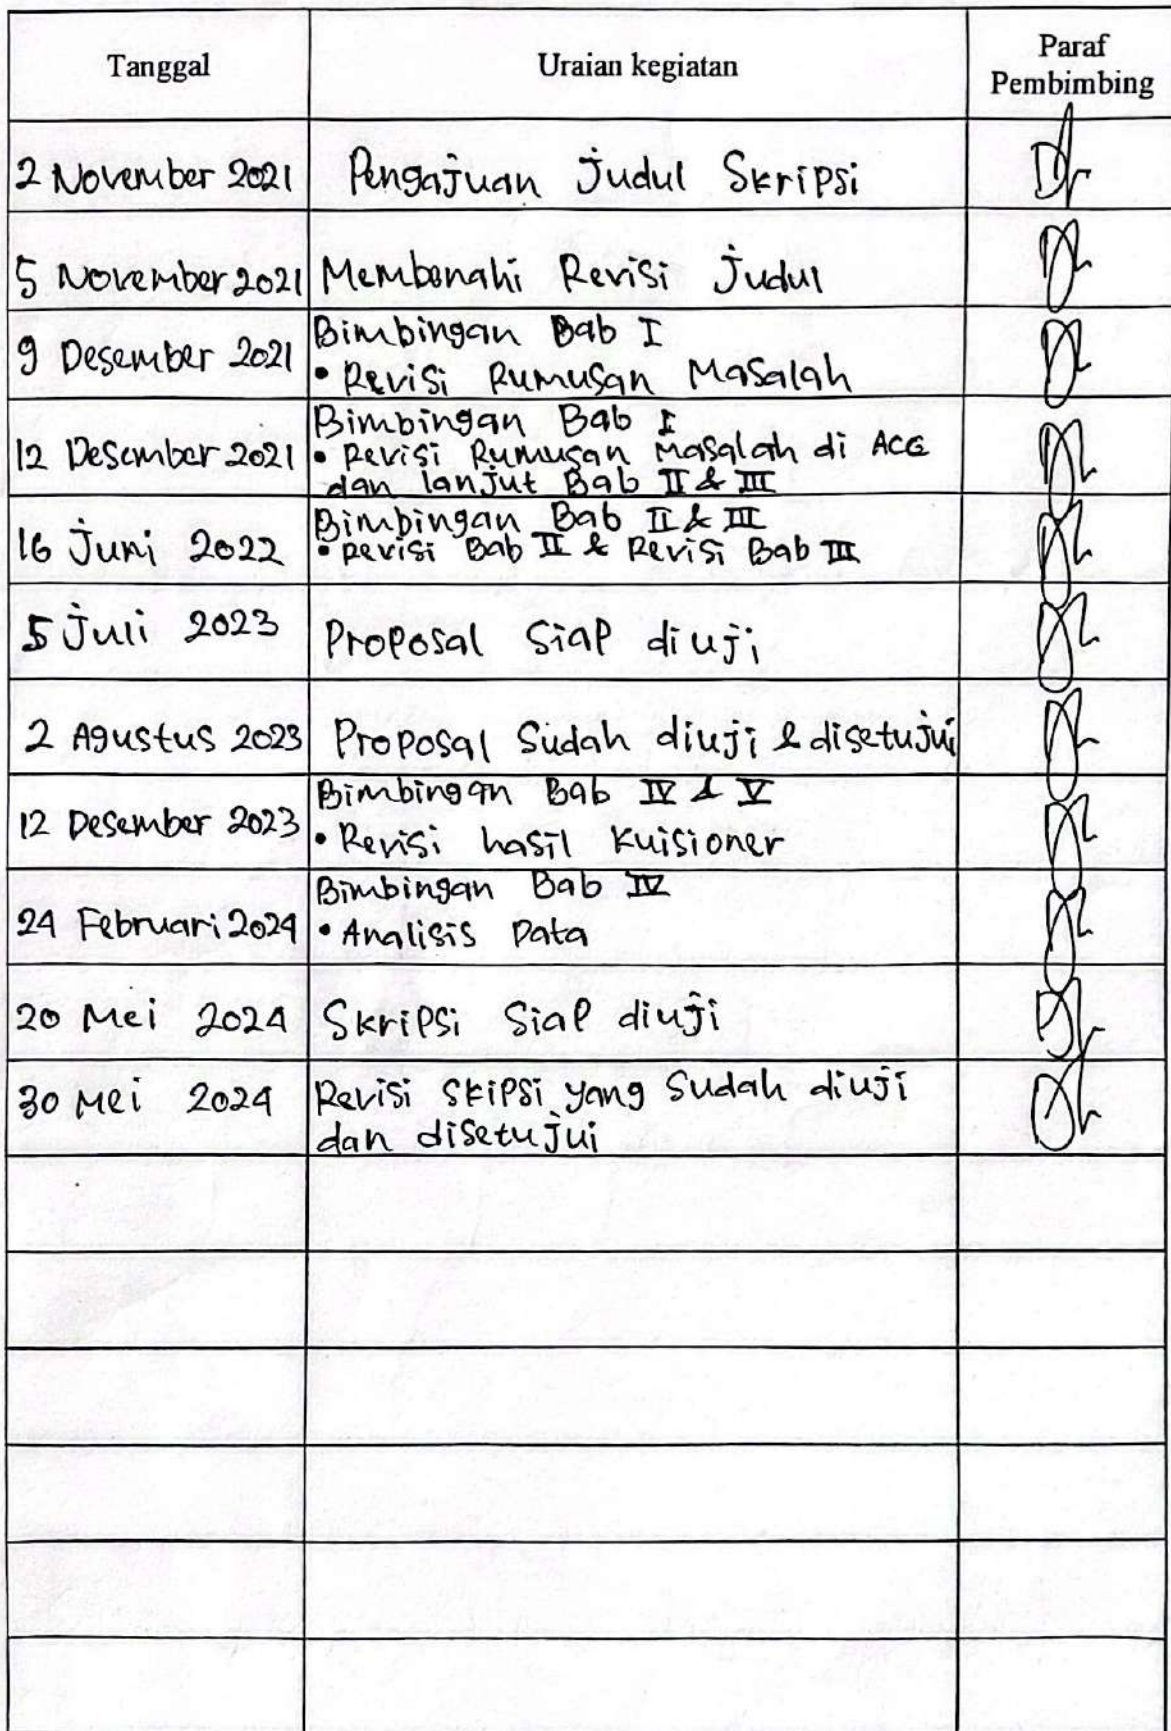 Tanggal
Uraian kegiatan
Paraf
Pembimbing
2 November 2021
Pengajuan Judul Skripsi
5 November 2021
Membenahi Revisi Judul
9 Desember 2021
Bimbingan Bab I
• Revisi Rumusan Masalah
12 Desember 2021
Bimbingan Bab I
• Revisi Rumusan Masalah di ACC
dan lanjut Bab II & III
16 Juni 2022
Bimbingan Bab II & III
• Revisi Bab II & Revisi Bab III
5 Juli 2023
Proposal Siap diuji
2 Agustus 2023
Proposal Sudah diuji & disetujui
12 Desember 2023
Bimbingan Bab IV & V
• Revisi hasil Kuisioner
24 Februari 2024
Bimbingan Bab IV
• Analisis Data
20 Mei 2024
Skripsi Siap diuji
30 Mei 2024
Revisi Skipsi yang Sudah diuji
dan disetujui